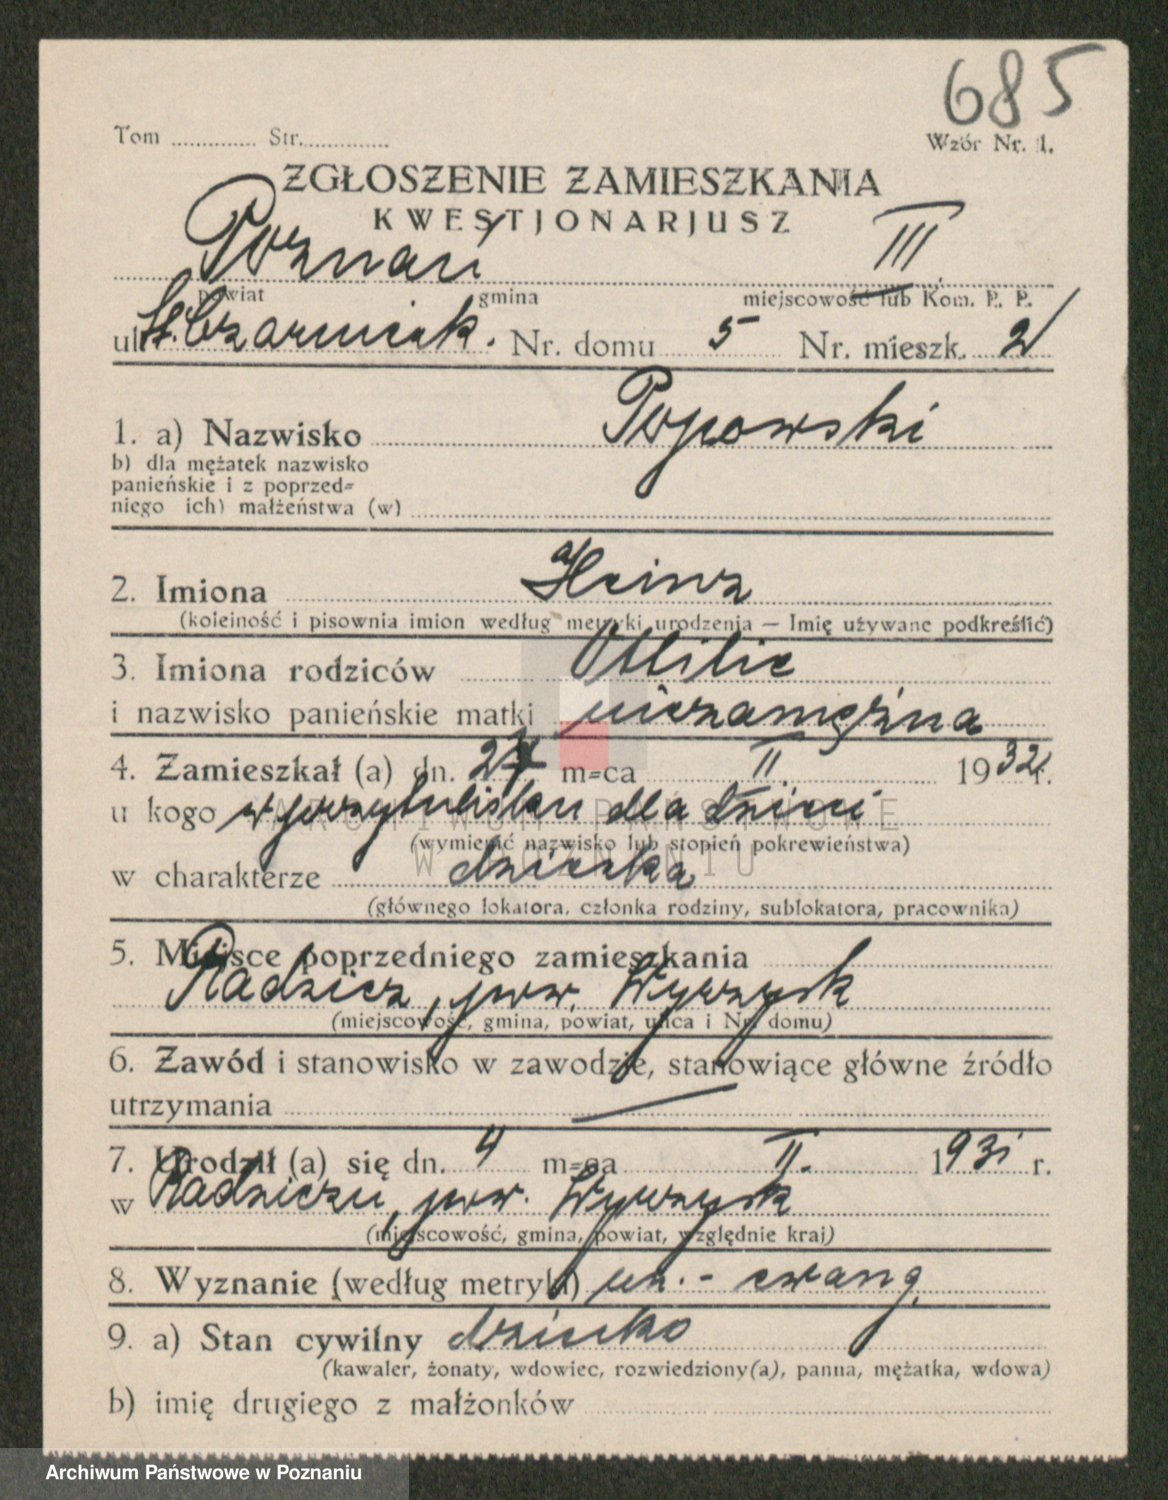 685
Tom ............ Str...............
Wzór Nr. 1.
ZGŁOSZENIE ZAMIESZKANIA
KWESTJONARJUSZ
Poznań III
powiat gmina miejscowość lub Kom. P. P.
ul. St. Czarnieck. Nr. domu 5 Nr. mieszk. 2
1. a) Nazwisko Popowski
b) dla mężatek nazwisko
panieńskie i z poprzed=
niego ich) małżeństwa (w)
2. Imiona Heinz
(koleiność i pisownia imion według metryki urodzenia — Imię używane podkreślić)
3. Imiona rodziców Ottilie
i nazwisko panieńskie matki niezamężna
4. Zamieszkał (a) dn. 27 m=ca II. 1932 r.
u kogo w przytulisku dla dzieci
(wymienić nazwisko lub stopień pokrewieństwa)
w charakterze dziecka
(głównego lokatora, członka rodziny, sublokatora, pracownika)
ARCHIWUM PAŃSTWOWE
W POZNANIU
5. Miejsce poprzedniego zamieszkania
Radzicz, pow. Wyrzysk
(miejscowość, gmina, powiat, ulica i Nr. domu)
6. Zawód i stanowisko w zawodzie, stanowiące główne źródło
utrzymania —
7. Urodził (a) się dn. 4 m=ca II. 1931 r.
w Radziczu, pow. Wyrzysk
(miejscowość, gmina, powiat, względnie kraj)
8. Wyznanie (według metryki) un. - ewang.
9. a) Stan cywilny dziecko
(kawaler, żonaty, wdowiec, rozwiedziony(a), panna, mężatka, wdowa)
b) imię drugiego z małżonków
Archiwum Państwowe w Poznaniu